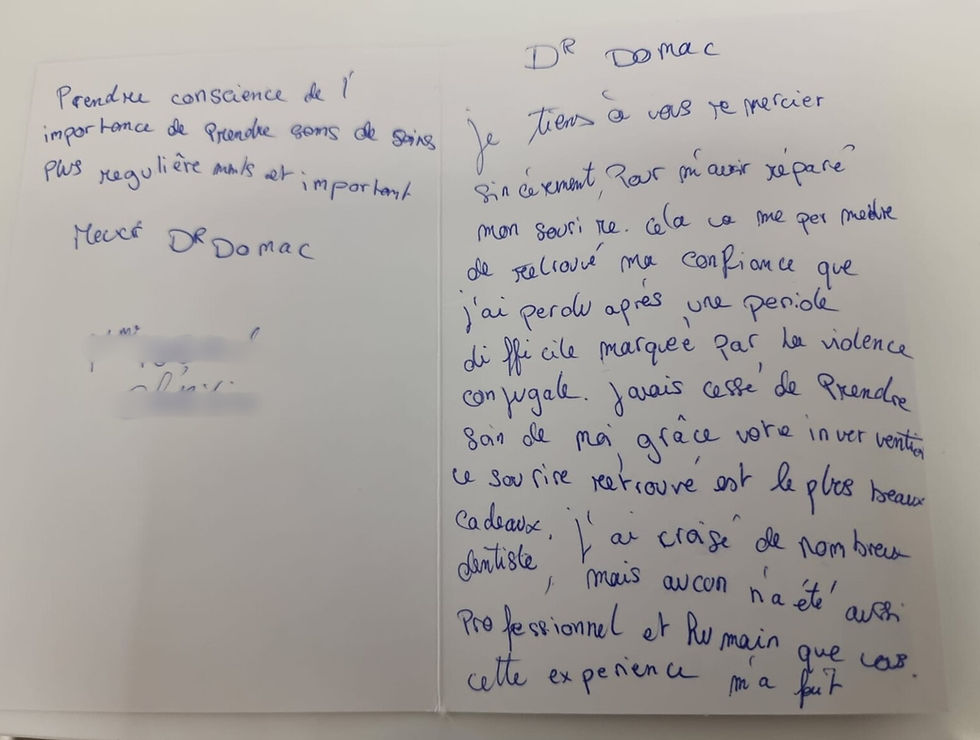 DR DOMAC
je tiens à vous remercier
sincérement, Pour m'avoir réparé
mon sourire. Cela va me permettre
de retrouvé ma confiance que
j'ai perdu après une periode
difficile marqueé par la violence
conjugale. J'avais cessé de Prendre
soin de moi, grâce votre interventien
ce sourire retrouvé est le plus beaux
cadeaux. J'ai croisé de nombreux
dentiste, mais aucun n'a été aussi
Professionnel et Humain que vous.
cette experience m'a fait
Prendre conscience de l'
importance de Prendre soins de soins
plus regulièrements et important
Merci DR DOMAC